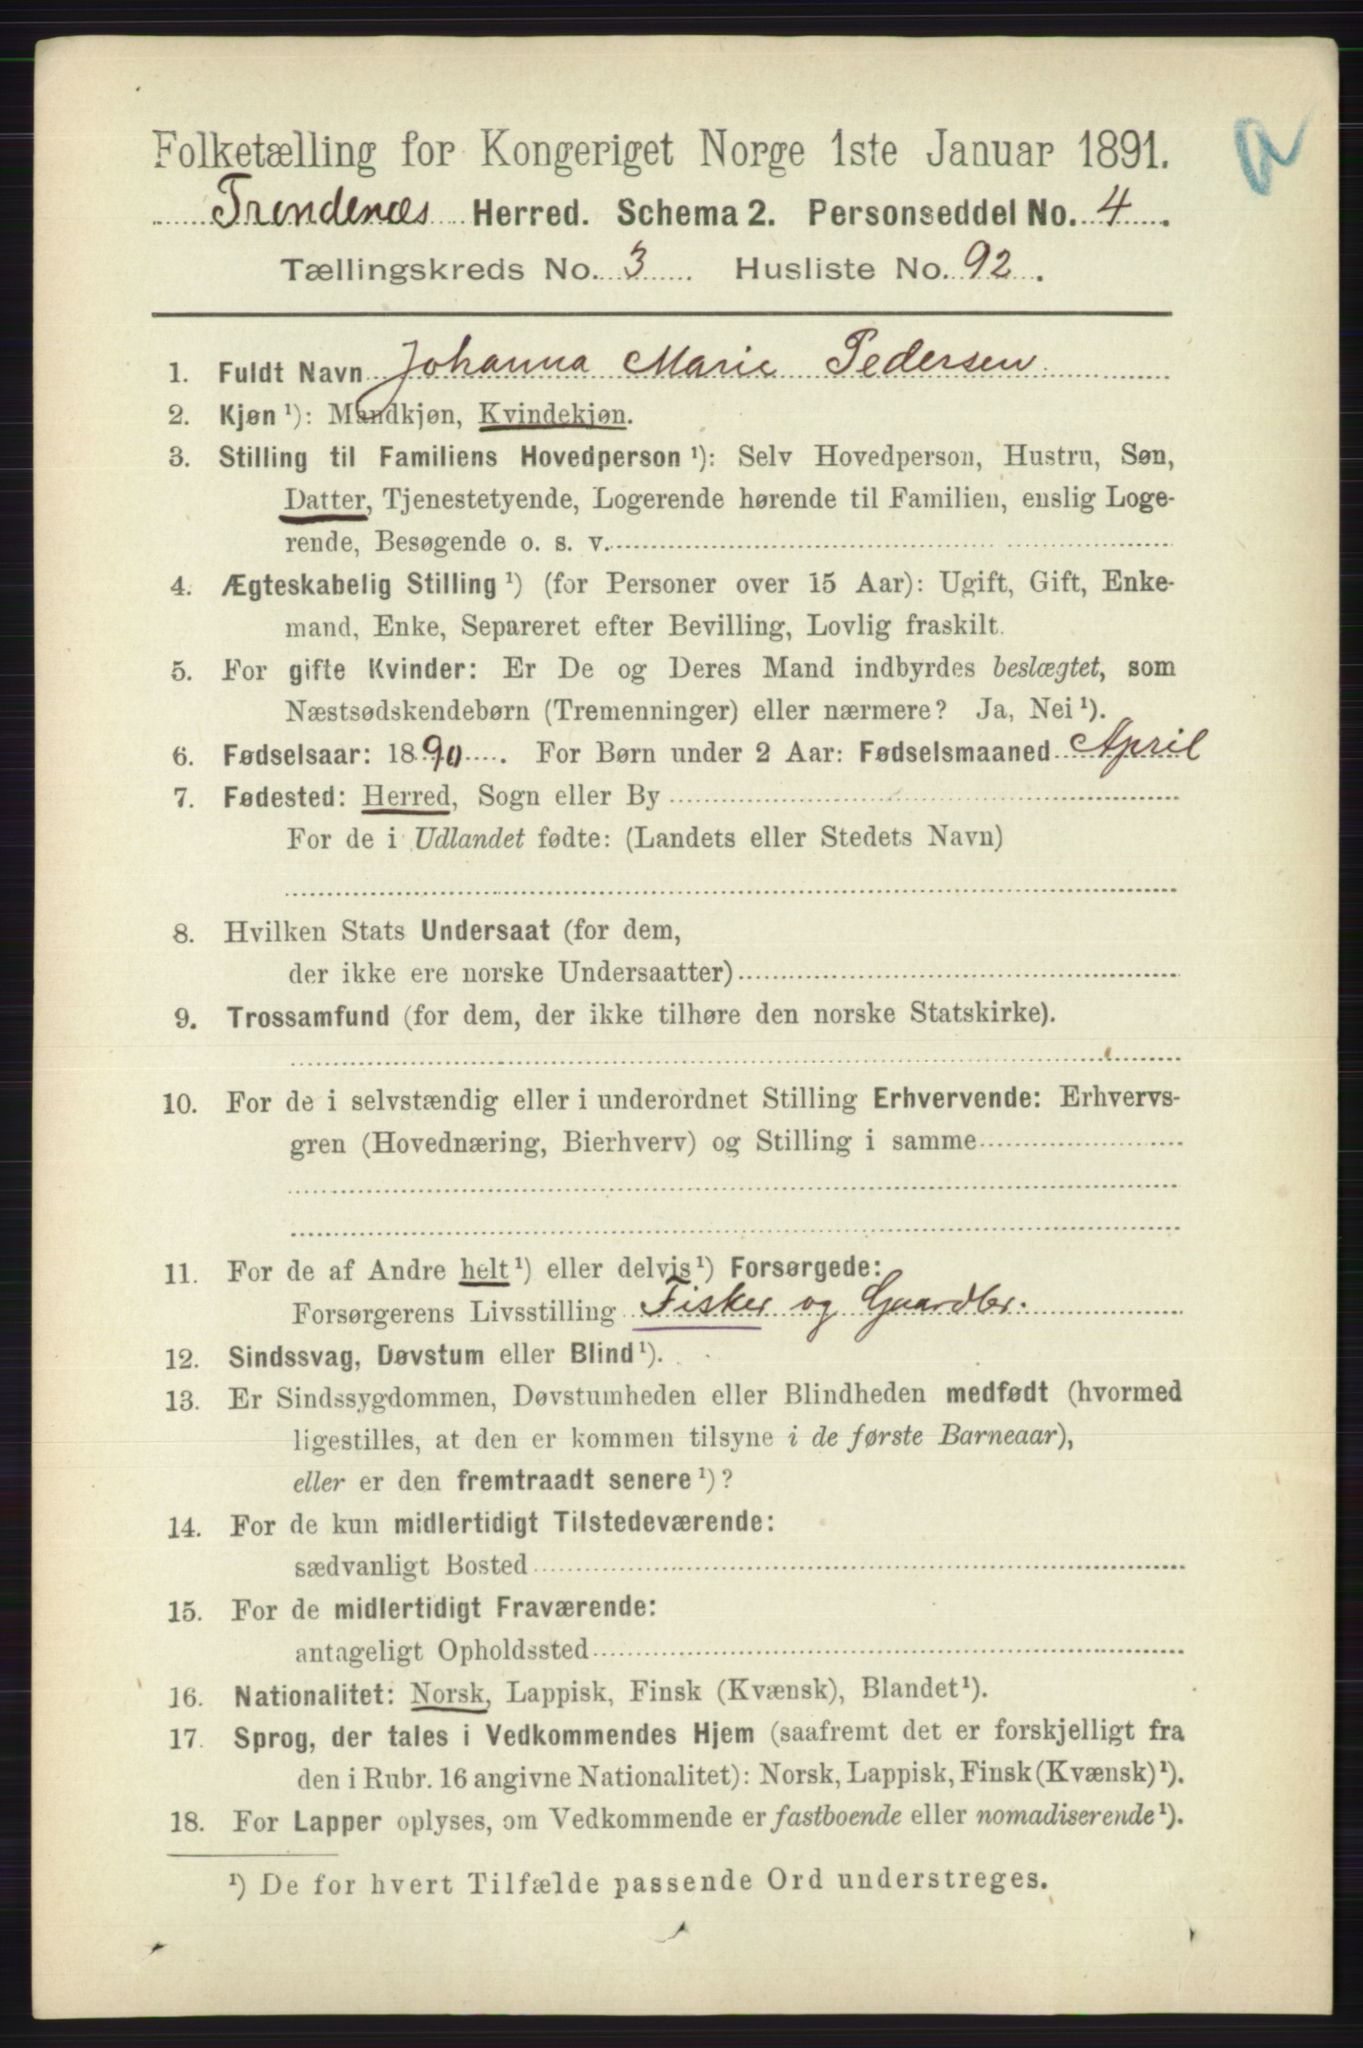 Folketælling for Kongeriget Norge 1ste Januar 1891.
a
Trondenæs Herred. Schema 2. Personseddel No. 4.
Tællingskreds No. 3. Husliste No. 92.
1. Fuldt Navn Johanna Marie Pedersen
2. Kjøn ¹): Mandkjøn, Kvindekjøn.
3. Stilling til Familiens Hovedperson ¹): Selv Hovedperson, Hustru, Søn,
Datter, Tjenestetyende, Logerende hørende til Familien, enslig Loge-
rende, Besøgende o. s. v.
4. Ægteskabelig Stilling ¹) (for Personer over 15 Aar): Ugift, Gift, Enke-
mand, Enke, Separeret efter Bevilling, Lovlig fraskilt.
5. For gifte Kvinder: Er De og Deres Mand indbyrdes beslægtet, som
Næstsødskendebørn (Tremenninger) eller nærmere? Ja, Nei ¹).
6. Fødselsaar: 1890. For Børn under 2 Aar: Fødselsmaaned April
7. Fødested: Herred, Sogn eller By
For de i Udlandet fødte: (Landets eller Stedets Navn)
8. Hvilken Stats Undersaat (for dem,
der ikke ere norske Undersaatter)
9. Trossamfund (for dem, der ikke tilhøre den norske Statskirke).
10. For de i selvstændig eller i underordnet Stilling Erhvervende: Erhvervs-
gren (Hovednæring, Bierhverv) og Stilling i samme
11. For de af Andre helt ¹) eller delvis ¹) Forsørgede:
Forsørgerens Livsstilling Fisker og Gaardbr.
12. Sindssvag, Døvstum eller Blind ¹).
13. Er Sindssygdommen, Døvstumheden eller Blindheden medfødt (hvormed
ligestilles, at den er kommen tilsyne i de første Barneaar),
eller er den fremtraadt senere ¹)?
14. For de kun midlertidigt Tilstedeværende:
sædvanligt Bosted
15. For de midlertidigt Fraværende:
antageligt Opholdssted
16. Nationalitet: Norsk, Lappisk, Finsk (Kvænsk), Blandet ¹).
17. Sprog, der tales i Vedkommendes Hjem (saafremt det er forskjelligt fra
den i Rubr. 16 angivne Nationalitet): Norsk, Lappisk, Finsk (Kvænsk) ¹).
18. For Lapper oplyses, om Vedkommende er fastboende eller nomadiserende ¹).
¹) De for hvert Tilfælde passende Ord understreges.